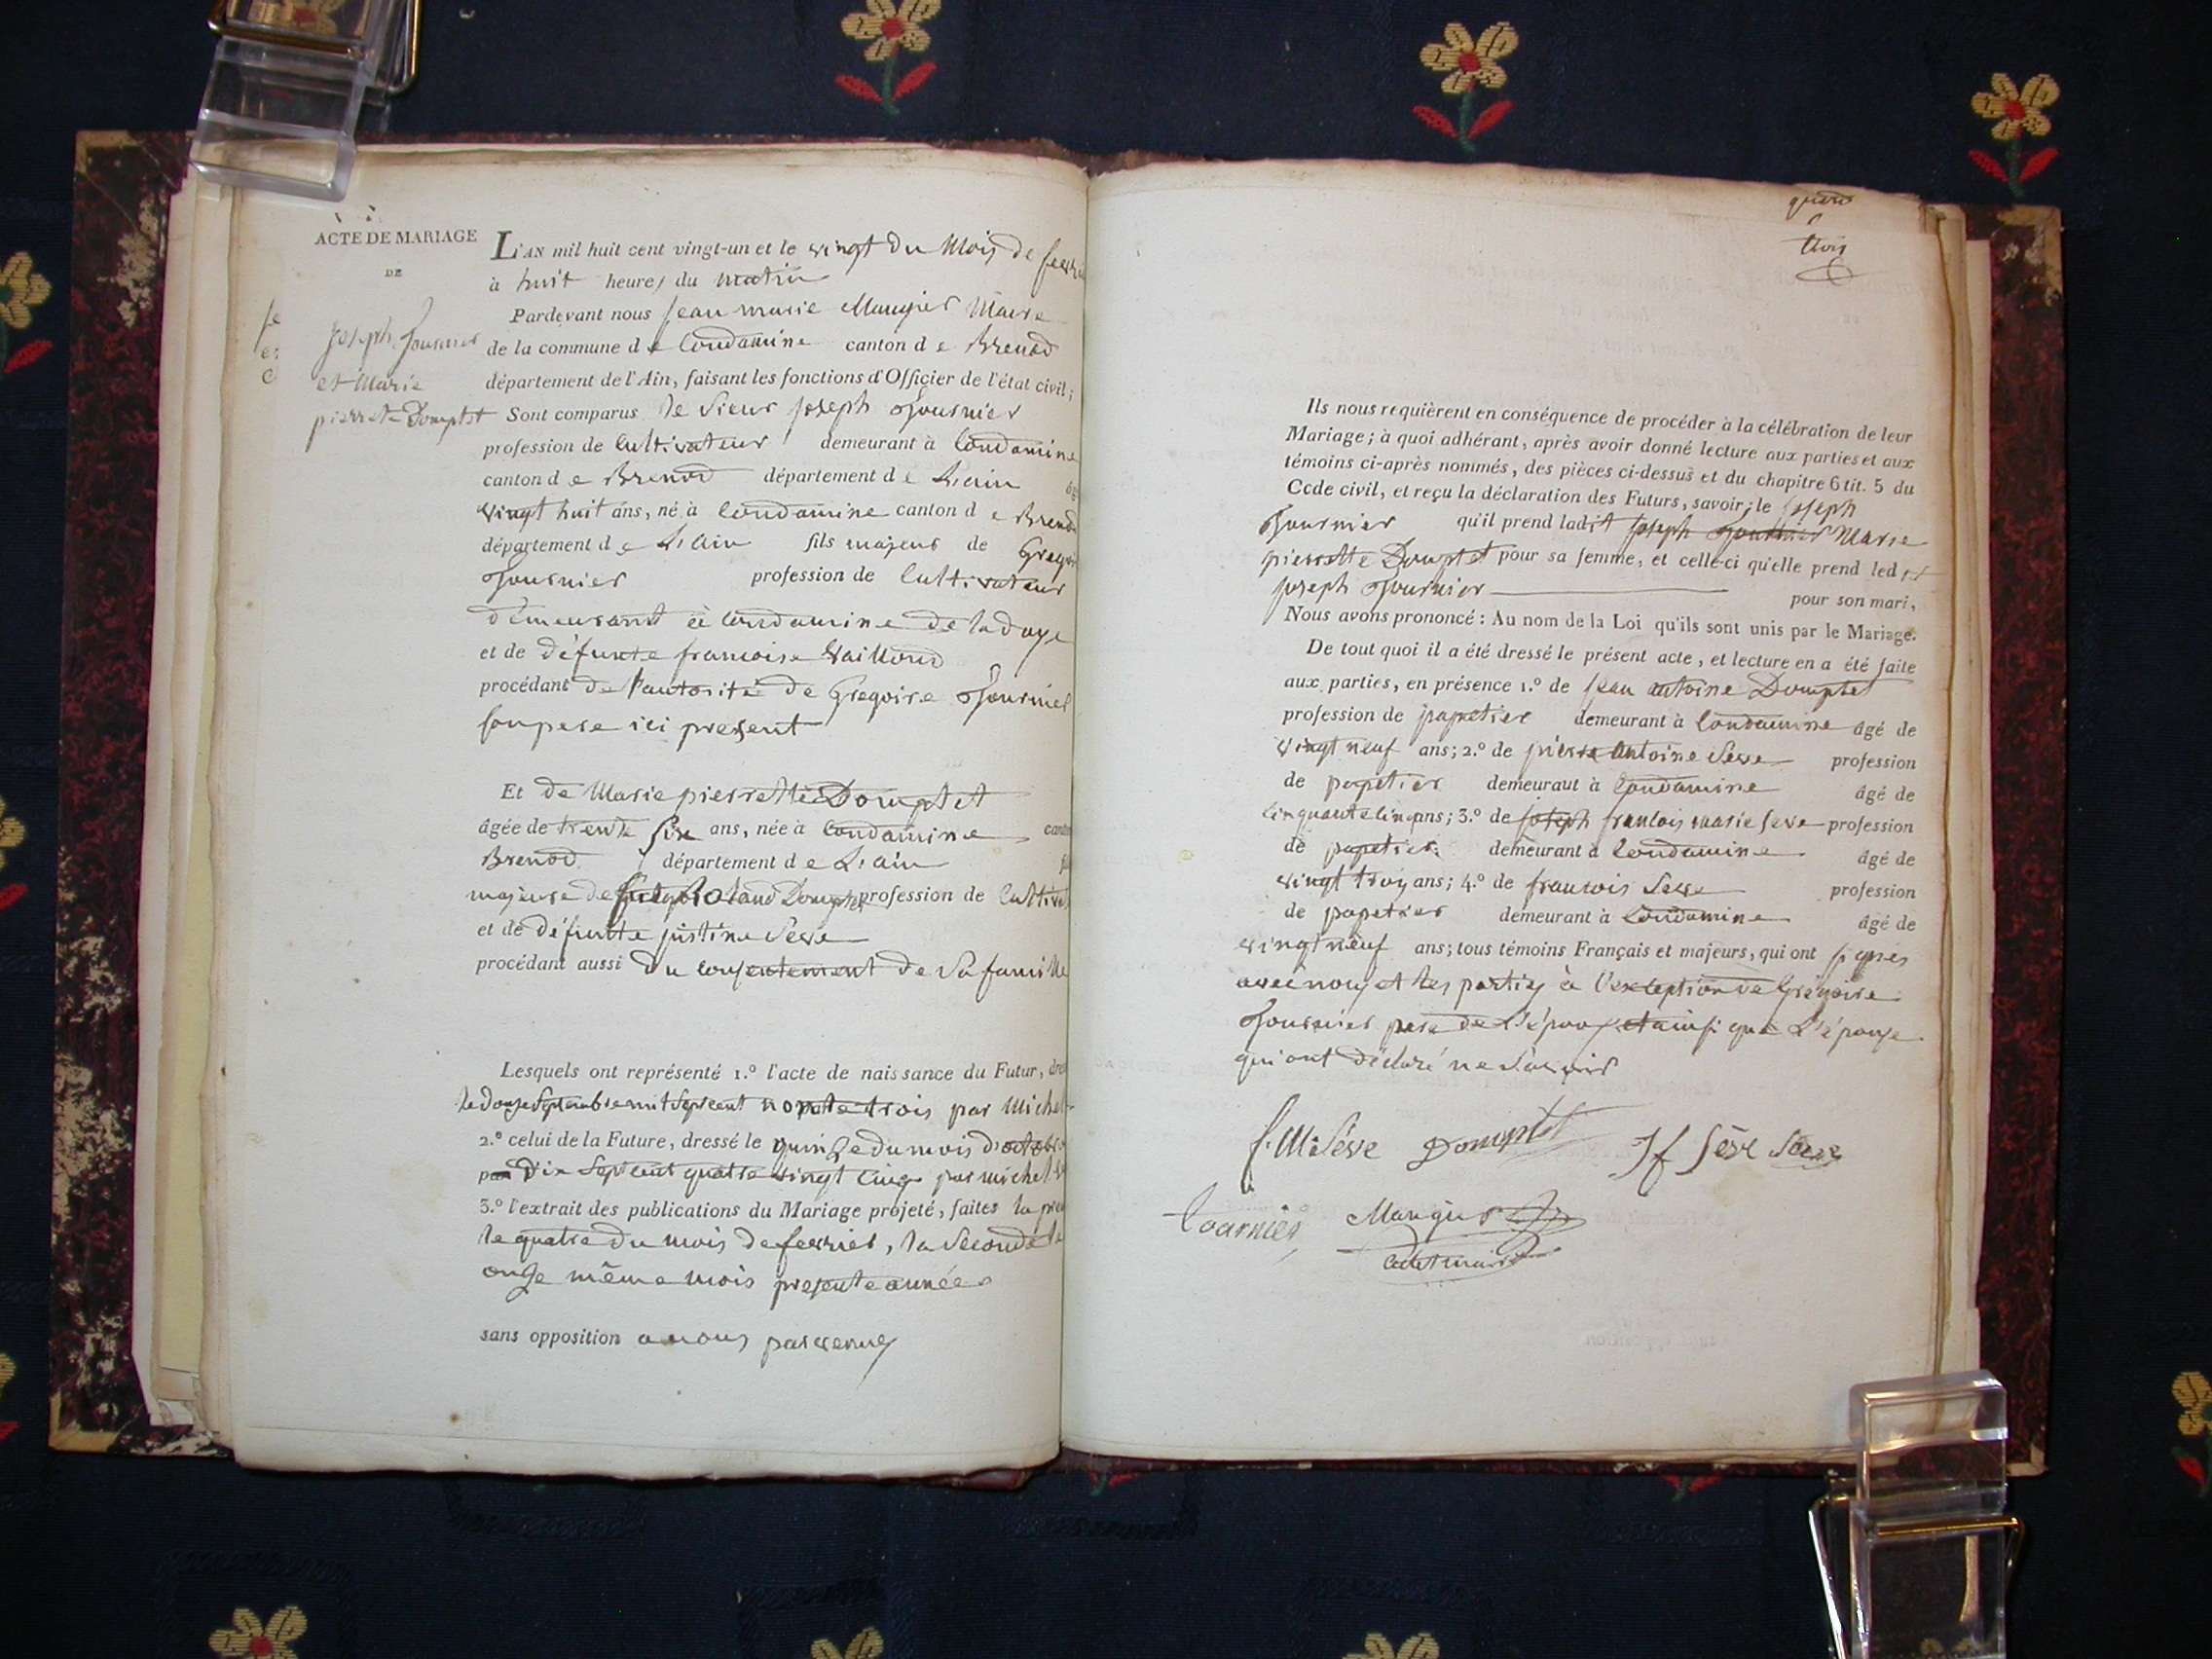 ACTE DE MARIAGE
DE
Joseph fournier
et Marie
pierrette Domptet
L'AN mil huit cent vingt-un et le vingt du Mois de
à huit heures du matin
Pardevant nous Jean marie Maugier Maire
de la commune de Condamine canton de Brenod
département de l'Ain, faisant les fonctions d'Officier de l'état civil;
Sont comparus le Sieur Joseph fournier
profession de Cultivateur demeurant à Condamine
canton de Brenod département de L'ain
vingt huit ans, né à Condamine canton de Brenod
département de L'ain fils majeur de
fournier profession de Cultivateur
demeurant à Condamine de ladoye
et de défunte francoise Vailloud
procédant de l'autorité de Gregoire fournier
son pere ici present
Et de Marie pierrette Domptet
âgée de trente six ans, née à Condamine
Brenod département de L'ain
majeure de Roland Domptet profession de
et de défunte justine Seve
procédant aussi du consentement de Sa famille
Lesquels ont représenté 1.º l'acte de naissance du Futur,
le douze Septembre mil Sept cent nonante trois par Michel
2.º celui de la Future, dressé le quinze du mois d'octobre
dix Sept cent quatre vingt Cinq par michel
3.º l'extrait des publications du Mariage projeté, faites la
le quatre du mois de fevrier, la Seconde le
onze même mois presente année
sans opposition a nous parvenue
quarante
trois
Ils nous requièrent en conséquence de procéder à la célébration de leur
Mariage; à quoi adhérant, après avoir donné lecture aux parties et aux
témoins ci-après nommés, des pièces ci-dessus et du chapitre 6 tit. 5 du
Code civil, et reçu la déclaration des Futurs, savoir; le Joseph
fournier qu'il prend ladit Joseph fournier Marie
pierrette Domptet pour sa femme, et celle-ci qu'elle prend ledit
Joseph fournier pour son mari,
Nous avons prononcé: Au nom de la Loi qu'ils sont unis par le Mariage.
De tout quoi il a été dressé le présent acte, et lecture en a été faite
aux parties, en présence 1.º de Jean antoine Domptet
profession de papetier demeurant à Condamine âgé de
vingt neuf ans; 2.º de pierre Antoine Seve profession
de papetier demeurant à Condamine âgé de
Cinquante Cinq ans; 3.º de joseph francois marie Seve profession
de papetier demeurant à Condamine âgé de
vingt trois ans; 4.º de francois Seve profession
de papetier demeurant à Condamine âgé de
vingt neuf ans; tous témoins Français et majeurs, qui ont signés
avec nous et les parties à l'exception de Grégoire
fournier pere de L'époux et ainsi que L'épouse
qui ont déclaré ne Savoir
f. M. Séve Domptet J f Séve Seve
fournier Maugier